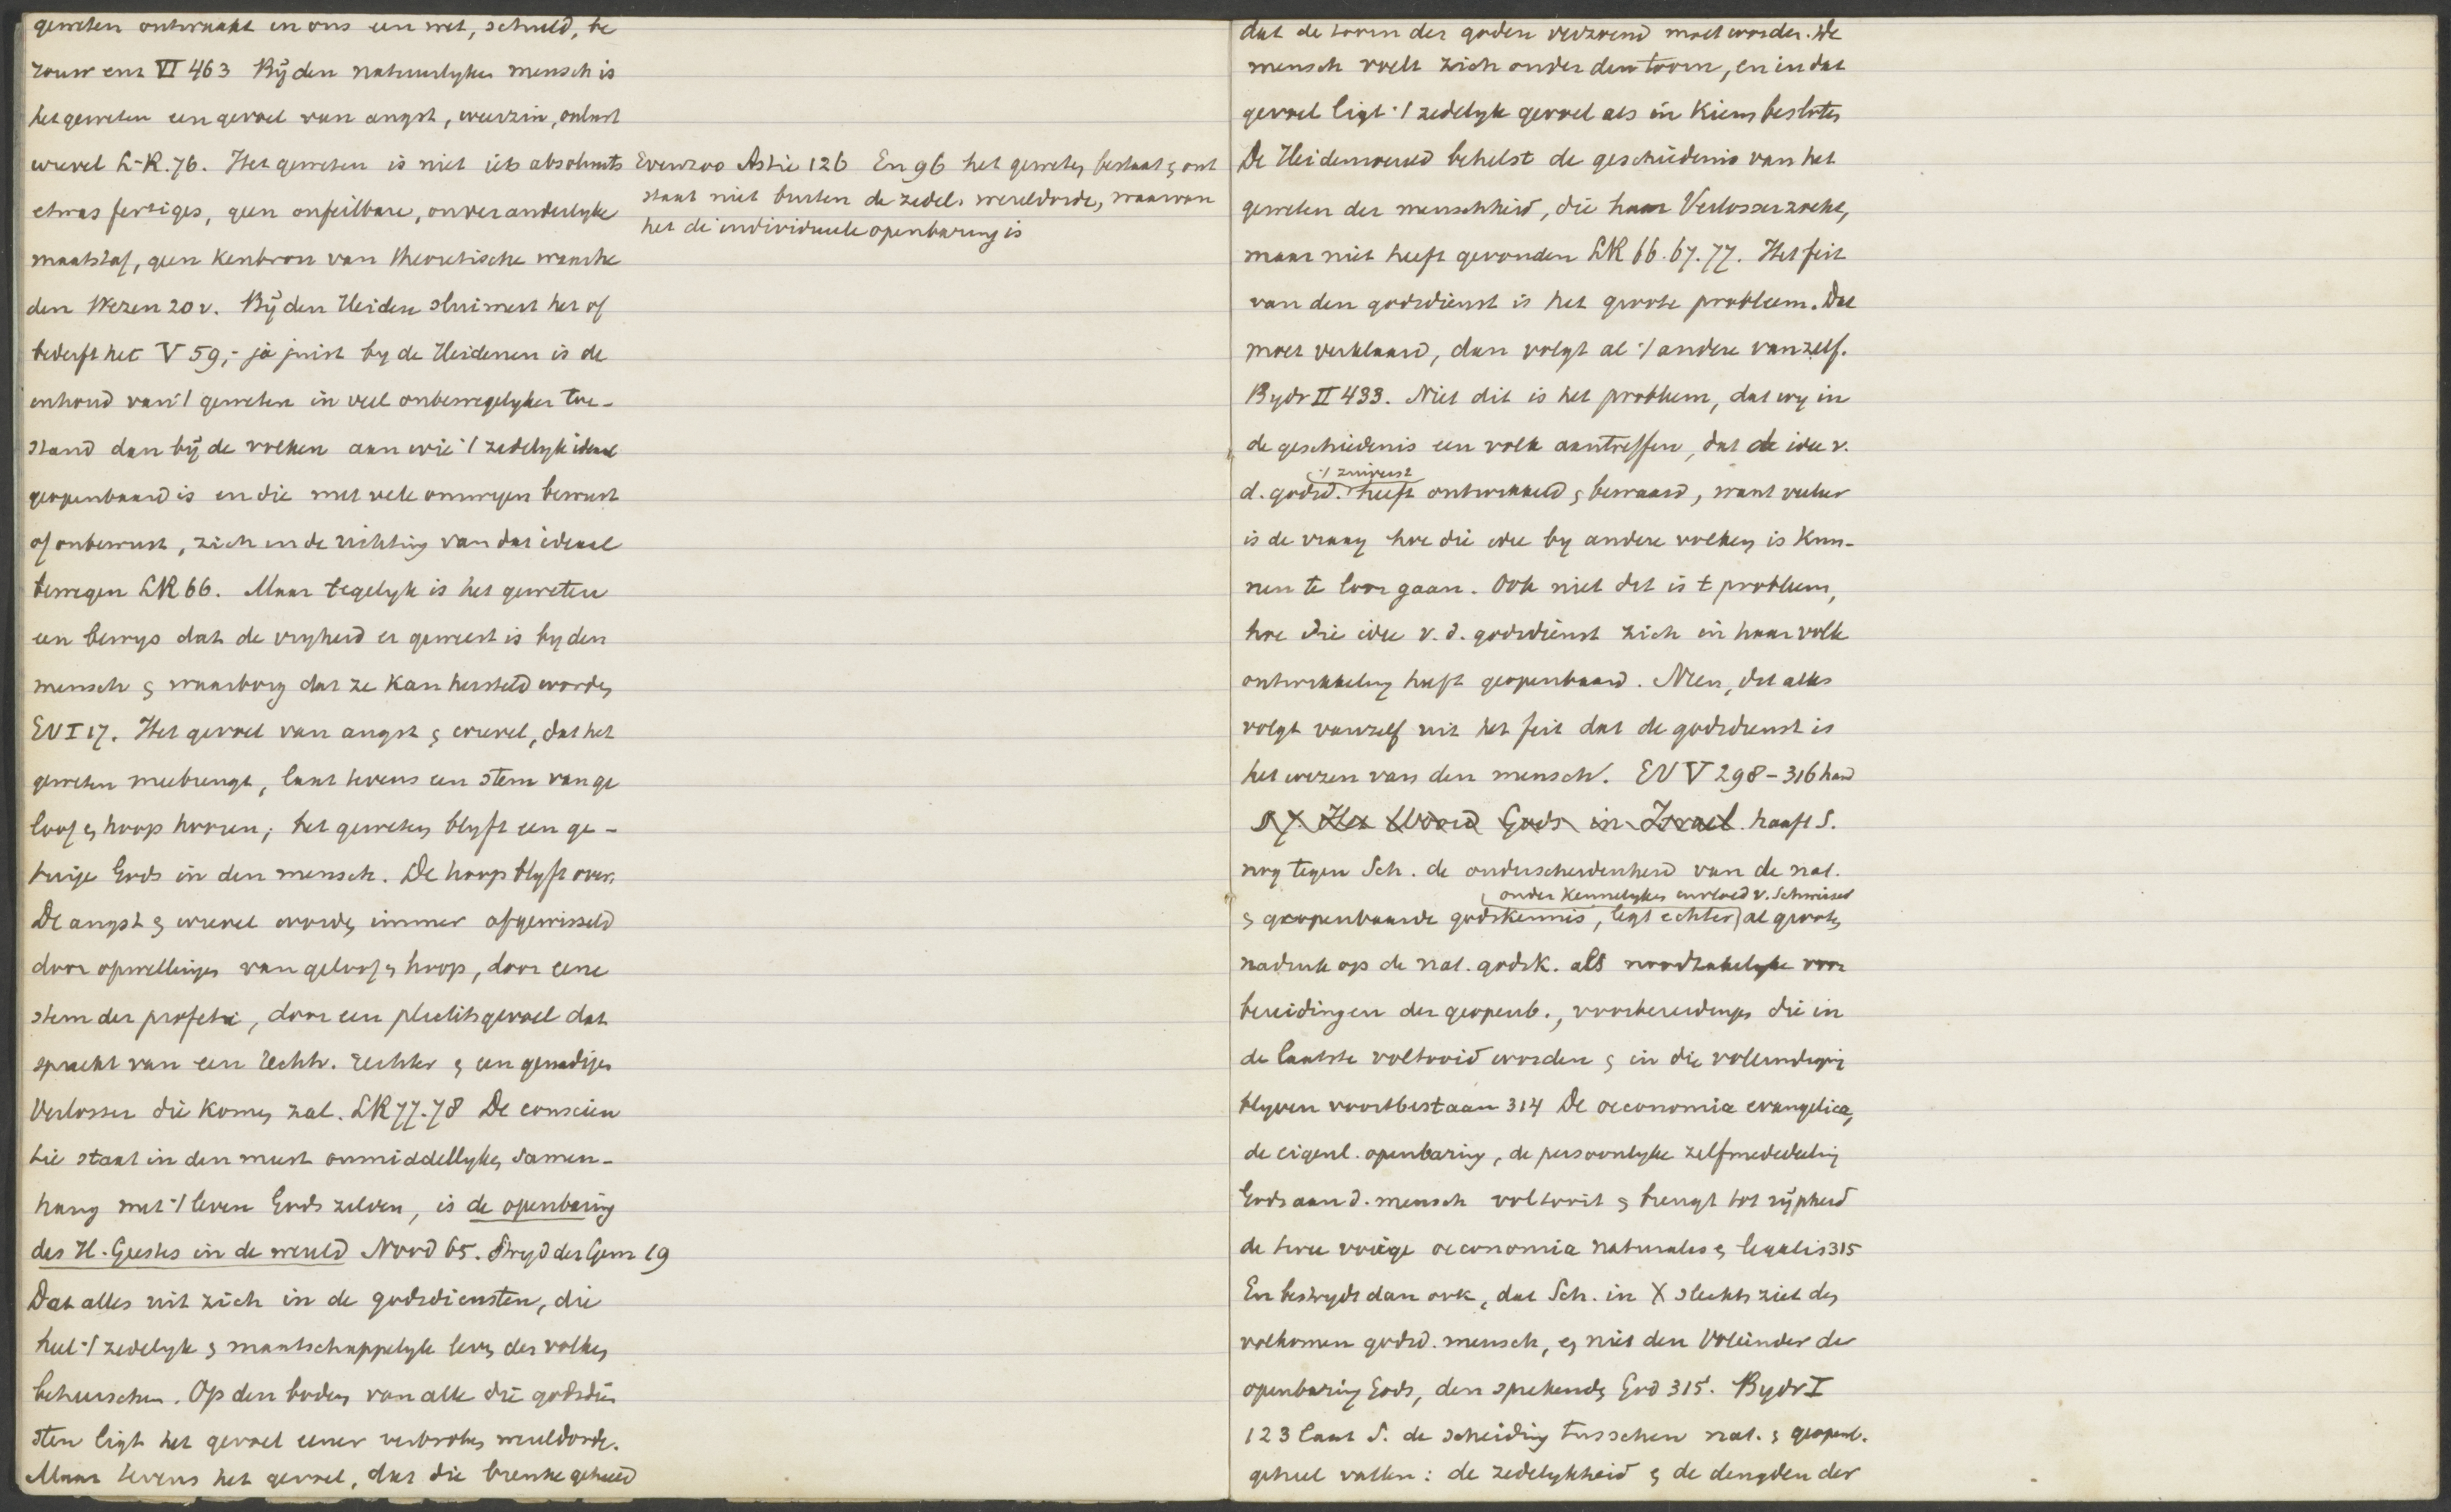 geweten ontwaakt in ons een wet, schuld, be
rouw enz VI 463 By den natuurlyken mensch is
het geweten een gevoel van angst, weerzin, onlust
wrevel L-R. 76. Het geweten is niet iets absoluuts
etwas fertiges, geen onfeilbare, onveranderlyke
maatstaf, geen kenbron van theoretische waarhe
den Wezen 20 v. By den Heiden sluimert het of
bederft het V 59,- ja juist by de Heidenen is de
inhoud van 't geweten in veel onbewegelyker toe-
stand dan by de volken aan wie 't zedelyk ideaal
geopenbaard is en die met vele omwegen bewust
of onbewust, zich in de richting van dat ideaal
bewegen LR 66. Maar tegelyk is het geweten
een bewys dat de vryheid er geweest is by den
mensch & waarborg dat ze kan hersteld worden
EV I 17. Het gevoel van angst & wrevel, dat het
geweten meebrengt, laat tevens een stem van ge
loof & hoop hooren; het geweten blyft een ge-
tuige Gods in den mensch. De hoop blyft over.
De angst & wrevel worden immer afgewisseld
door opwellingen van geloof & hoop, door eene
stem der profetie, door een plichtsgevoel dat
spreekt van een rechtv. rechter & een genadigen
Verlosser die komen zal. LR 77.78 De conscien
tie staat in den meest onmiddellyken samen-
hang met 't leven Gods zelven, is de openbaring
des H. Geestes in de wereld Nood 65. Stryd der Gem 19
Dat alles uit zich in de godsdiensten, die
heel 't zedelyk & maatschappelyk leven der volken
beheerschen. Op den bodem van alle die godsdien
sten ligt het gevoel eener verbroken wereldorde.
Maar tevens het gevoel, dat die breuke geheeld
Evenzoo Astié 126 En 96 het geweten bestaat & ont
staat niet buiten de zedel. wereldorde, waarvan
het de individueele openbaring is
dat de toorn der goden verzoend moet worden. De
mensch voelt zich onder den toorn, en in dat
gevoel ligt 't zedelyk gevoel als in kiem besloten
De Heidenwereld behelst de geschiedenis van het
geweten der menschheid, die haar Verlosser zoekt,
maar niet heeft gevonden LR 66.67.77. Het feit
van den godsdienst is het groote probleem. Dat
moet verklaard, dan volgt al 't andere vanzelf.
Bydr II 433. Niet dit is het probleem, dat wy in
de geschiedenis een volk aantreffen, dat de idee v.
't zuiverst
d. godsd. heeft ontwikkeld & bewaard, want veeleer
is de vraag hoe die idee by andere volken is kun-
nen te loor gaan. Ook niet dit is t probleem,
hoe die idee v. d. godsdienst zich in haar volle
ontwikkeling heeft geopenbaard. Neen, dit alles
volgt vanzelf uit het feit dat de godsdienst is
het wezen van den mensch. EV V 298-316 hand
§ 7. Het Woord Gods in Israel. haaft S.
nog tegen Sch. de onderscheidenheid van de nat.
onder kennelyken invloed v. Schweizer
& geopenbaarde godskennis, legt echter al grooten
nadruk op de nat. godsk. als noodzakelyke voor
bereidingen der geopenb., voorbereidingen die in
de laatste voltooid worden & in die vollendiging
blyven voortbestaan 314 De oeconomia evangelica,
de eigenl. openbaring, de persoonlyke zelfmededeeling
Gods aan d. mensch voltooit & brengt tot rypheid
de twee vorige oeconomia naturales & legalis 315
En bestrydt dan ook, dat Sch. in X slechts ziet den
volkomen godsd. mensch, en niet den Voleinder der
openbaring Gods, den sprekenden God 315. Bydr I
123 laat S. de scheiding tusschen nat. & geopenb.
geheel vallen: de zedelykheid & de deugden der